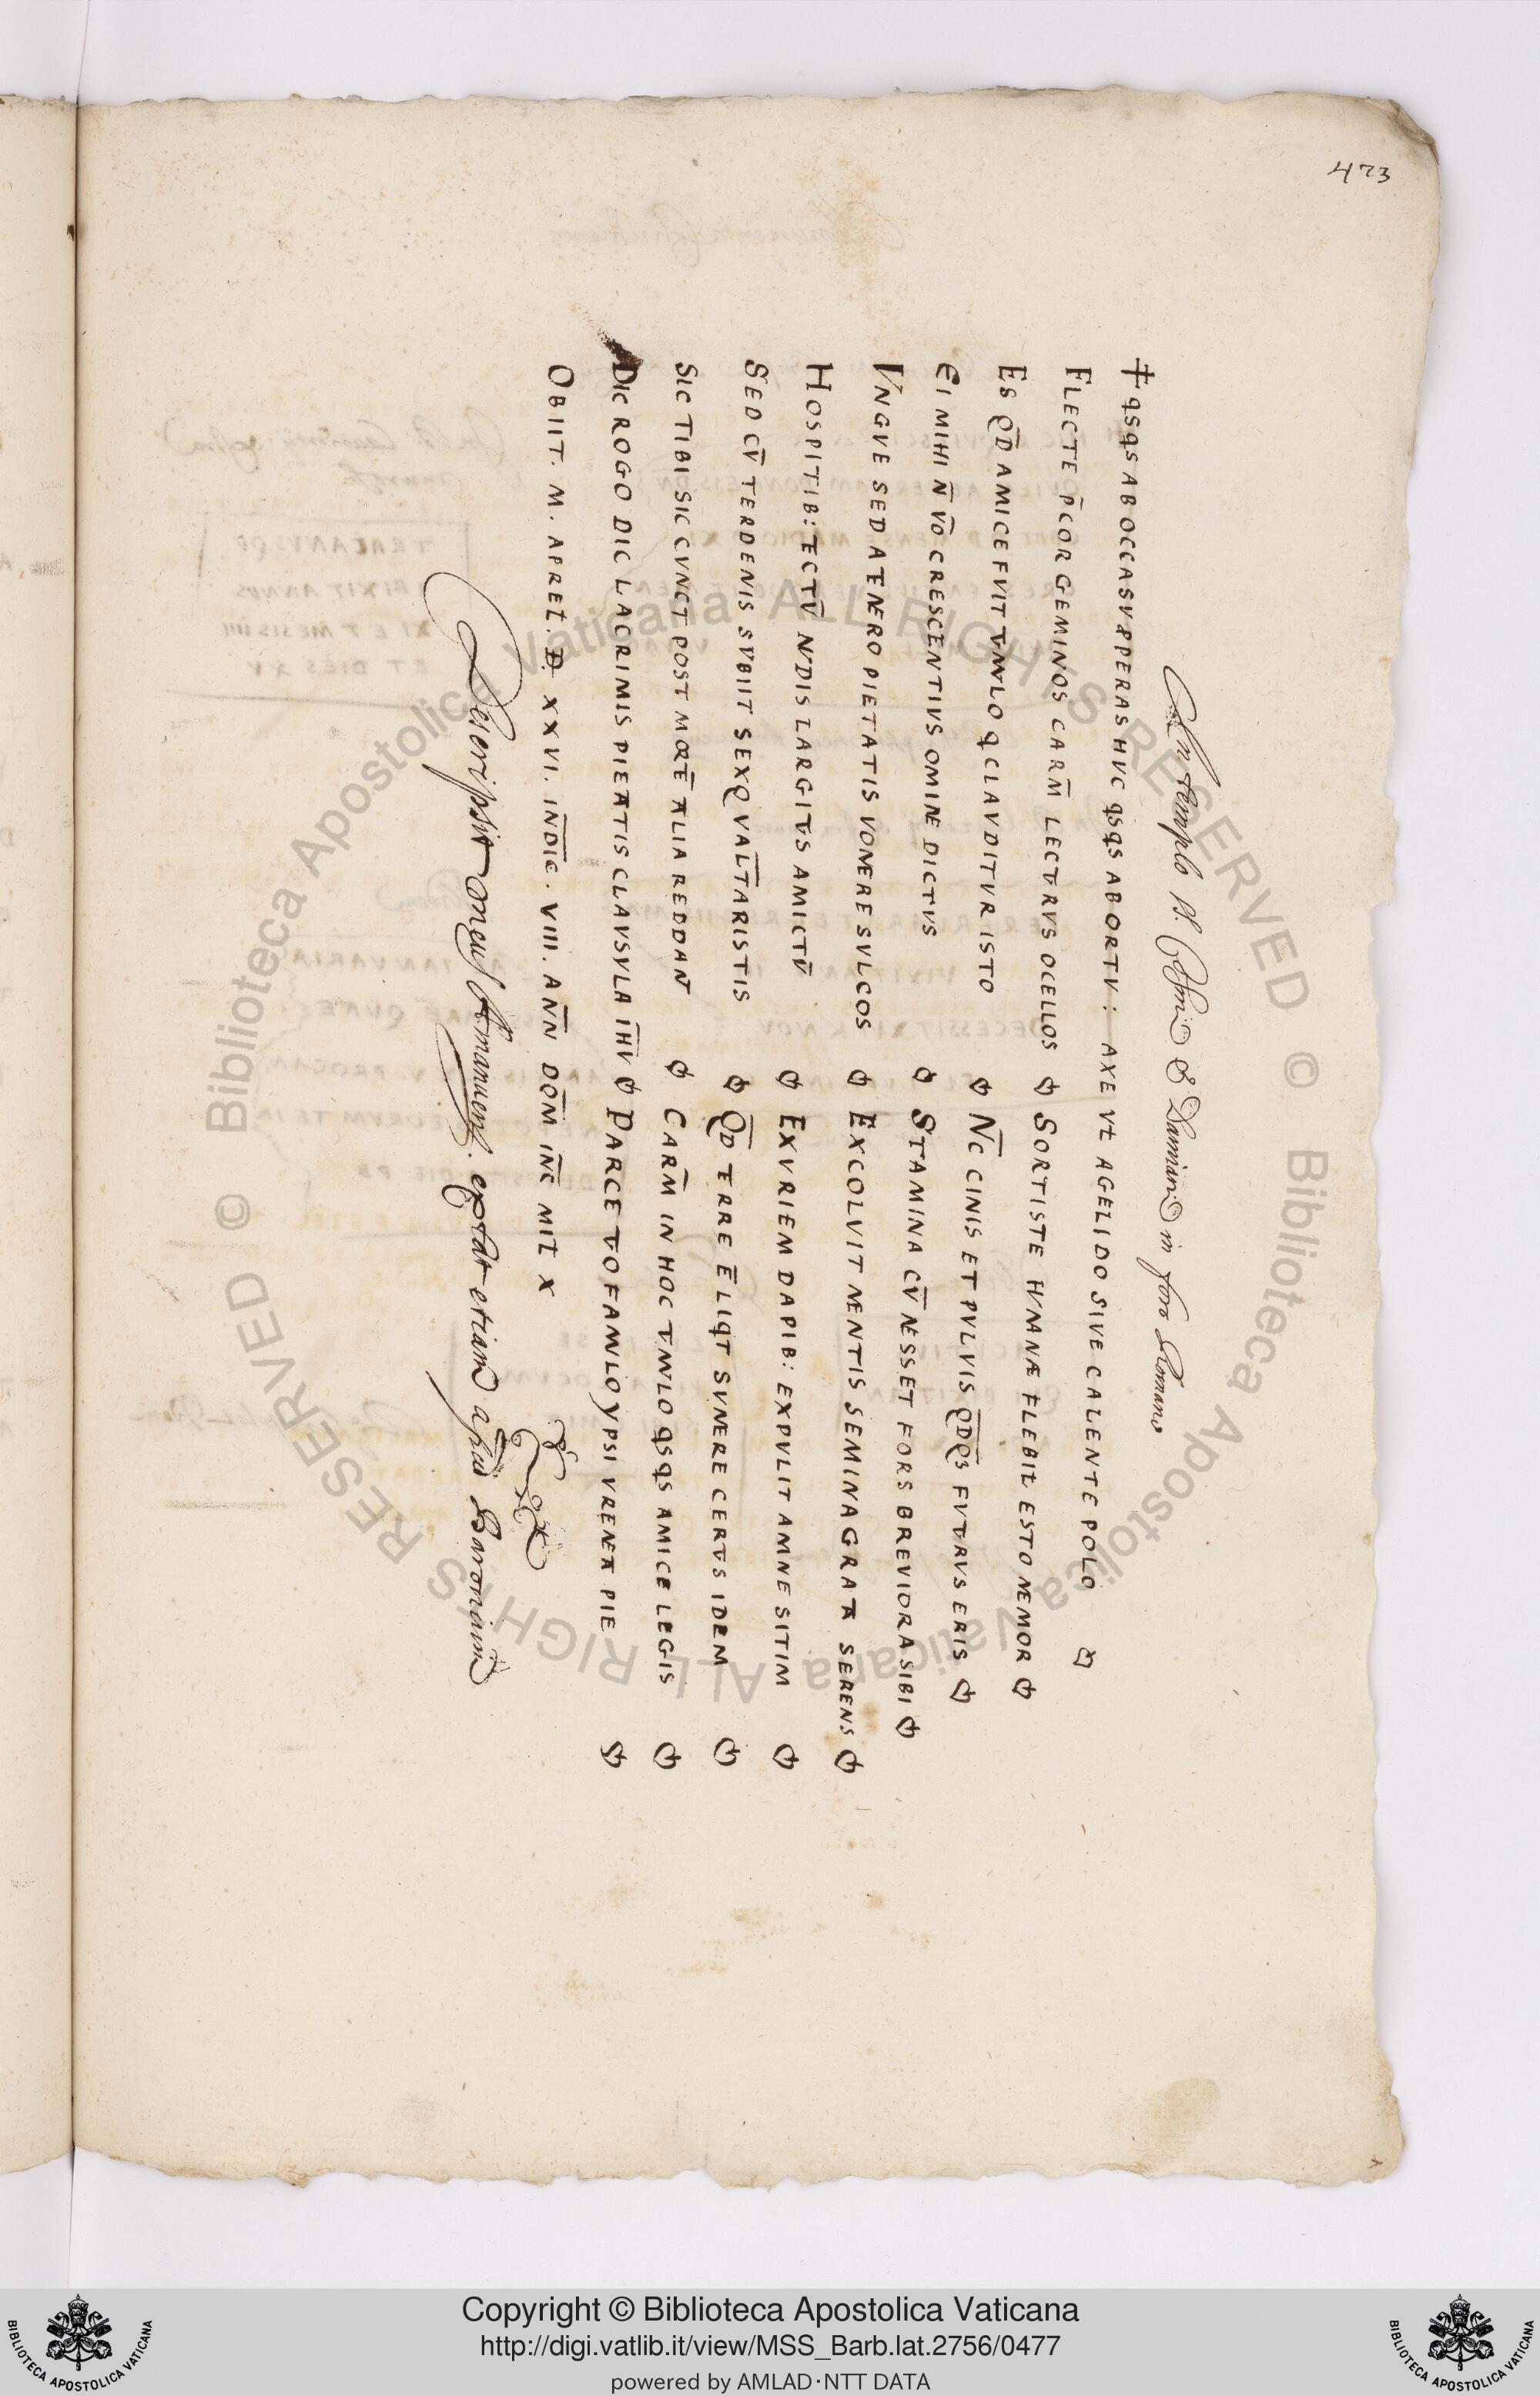 473
In templo SS. Cosmæ & Damiani in foro Romano
✝ qsqs AB OCCASV PPERAS HVC qsqs AB ORTV : AXE Vł AGELIDO SIVE CALENTE POLO
FLECTE P̄COR GEMINOS CARM̄ LECTVRVS OCELLOS SORTISTE HVMANÆ FLEBIŁ ESTO MEMOR
ES QD̄ AMICE FVIT TVMVLO q CLAVDITVR ISTO NC̄ CINIS ET PVLVIS QD̄QS FVTVRVS ERIS
EI MIHI N̄ VO̅ CRESCENTIVS OMINE DICTVS STAMINA CV̄ NESSET FORS BREVIORA SIBI
VNGVE SED A TENERO PIETATIS VOMERE SVLCOS EXCOLVIT MENTIS SEMINA GRATA SERENS
HOSPITIB: TECTV̄ NVDIS LARGITVS AMICTV̄ EXVRIEM DAPIB: EXPVLIT AMNE SITIM
SED CV̄ TERDENIS SVBIIT SEXQ VALT̄ARISTIS QD̄ TERRE Ē LIQT SVMERE CERTVS IDEM
SIC TIBI SIC CVNCT POST MORTĒ TALIA REDDANT CARM̄ IN HOC TVMVLO qsqs AMICE LEGIS
DIC ROGO DIC LACRIMIS PIETATIS CLAVSVLA IH̄V PARCE TVO FAMVLO YPSI VRENTA PIE
OBIIT. M. APREŁ. D. XXVI. INDIC̄. VIII. ANN̄ DOM̄ INC̄ MIŁ X
Descripsit meus Amanuens. extat etiam apud Baronium
Copyright © Biblioteca Apostolica Vaticana
http://digi.vatlib.it/view/MSS_Barb.lat.2756/0477
powered by AMLAD·NTT DATA